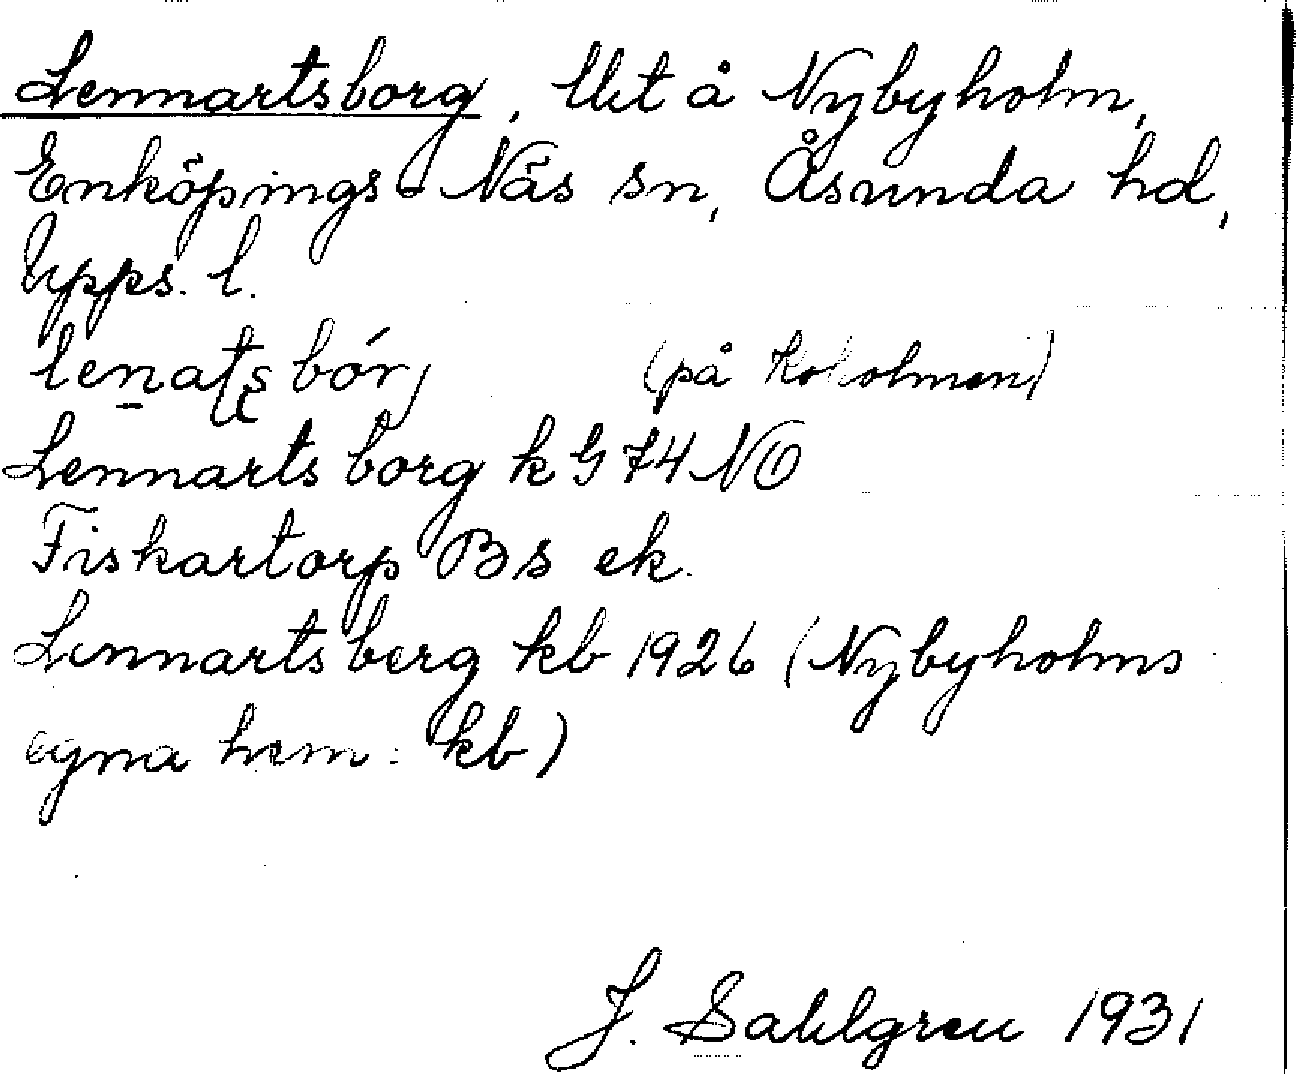 Lennartsborg, Uet å Nybyholm,
Enköpings-Näs sn, Åsunda hd,
Upps. l.
(på
Lennartsborg k G 74 NO
Fiskartorp Bs ek.
Lennartsberg kb 1926 (Nybyholms
egna hem: kb)
J. Sahlgren 1931